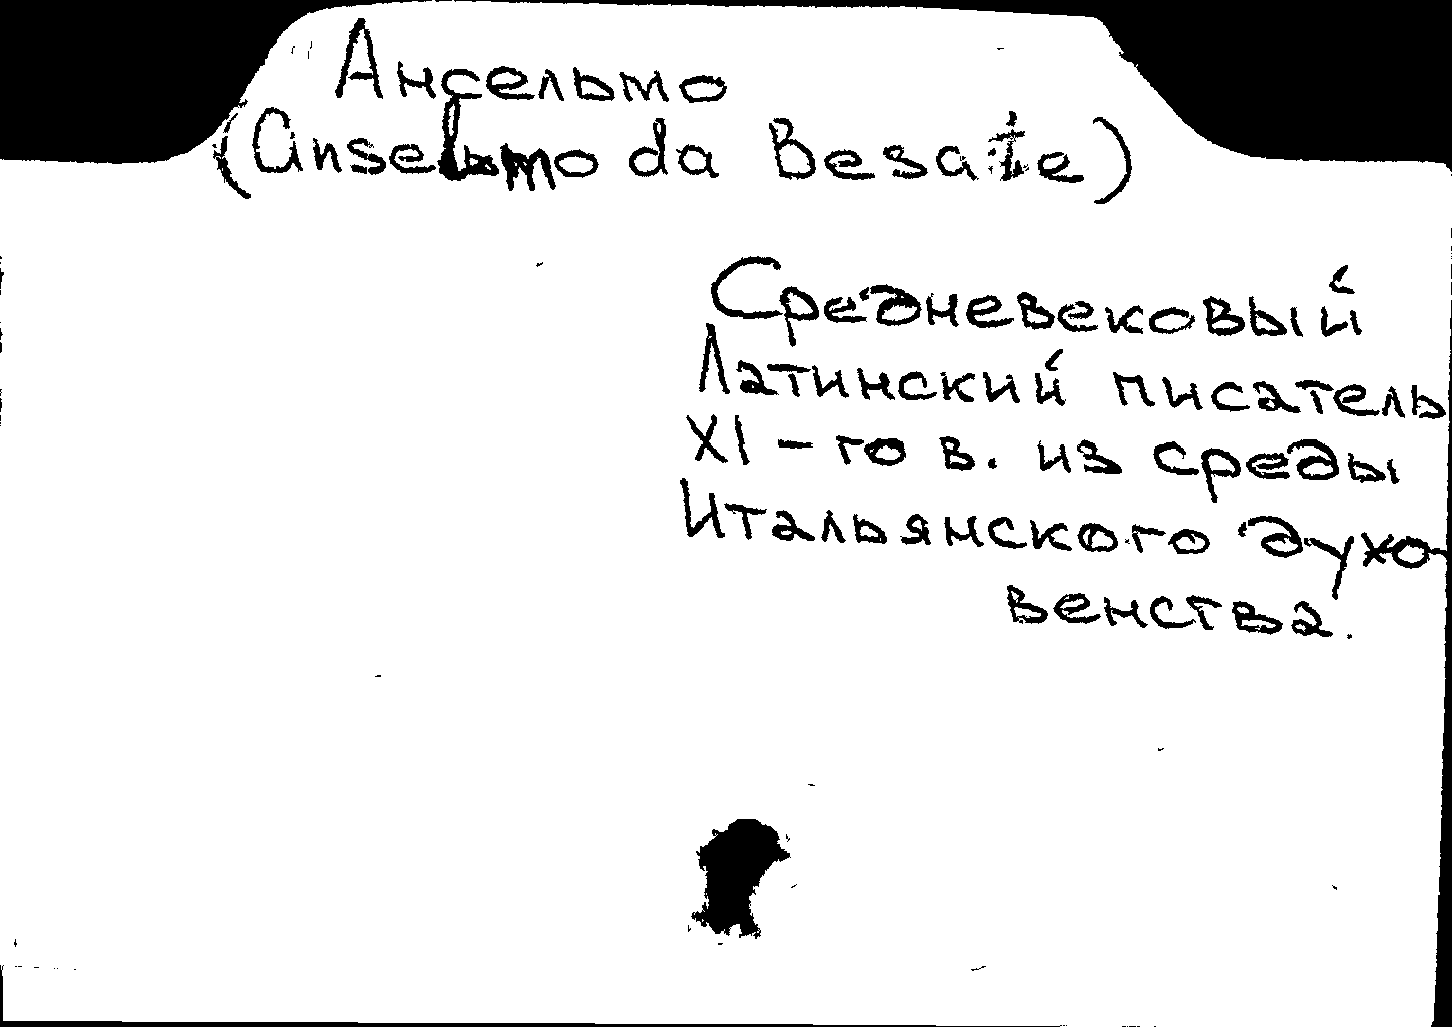 Ансельмо
(Anselmo da Besate)
Средневековый
Латинский писатель
XI – го в. из среды
Итальянского духо-
венства.